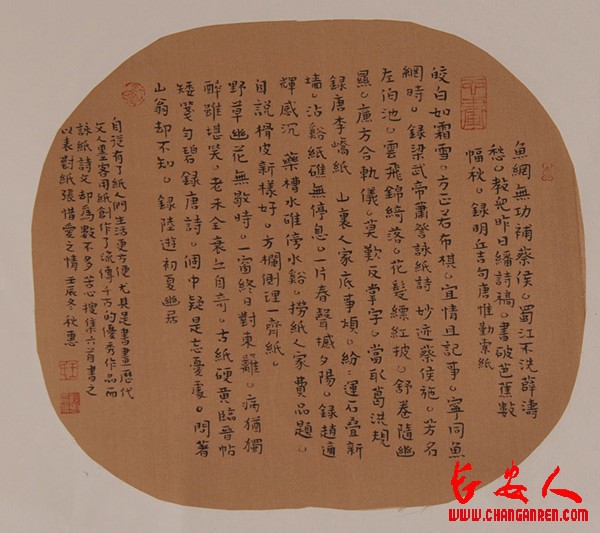 魚網無功補蔡侯。蜀江不洗薛濤
愁。教兒昨日繙詩稿。書破芭蕉數
幅秋。錄明丘吉句唐惟勤索紙
皎白如霜雪。方正若布棋。宜情且記事。寧同魚
網時。錄梁武帝蕭詧詠紙詩 妙迹蔡侯施。芳名
左伯池。雲飛錦綺落。花髮縹紅披。舒卷隨幽
顯。廉方合軌儀。莫歎反掌字。當取葛洪規
錄唐李嶠紙 山裏人家底事煩。紛〻運石疊新
墻。沾谿紙碓無停息。一片舂聲撼夕陽。錄趙適
輝感沉 藥槽水碓傍水谿。撈紙人家費品題。
自說楮皮新樣好。方欄側理一齊紙。
野草幽花無數時。一窗終日對東籬。病猶獨
醉雖堪笑。老未全衰亦自奇。古紙硬黃臨晉帖
矮箋勻碧錄唐詩。個中疑是忘憂處。問著
山翁却不知。錄陸游初夏幽居
自從有了紙人們生活更方便尤其是書畫歷代
文人墨客用紙創作了流傳千万的優秀作品而
詠紙詩文却爲數不多苦心搜集六首書之
以表對紙張惜愛之情 壬辰冬 秋惠
长安人
WWW.CHANGANREN.COM